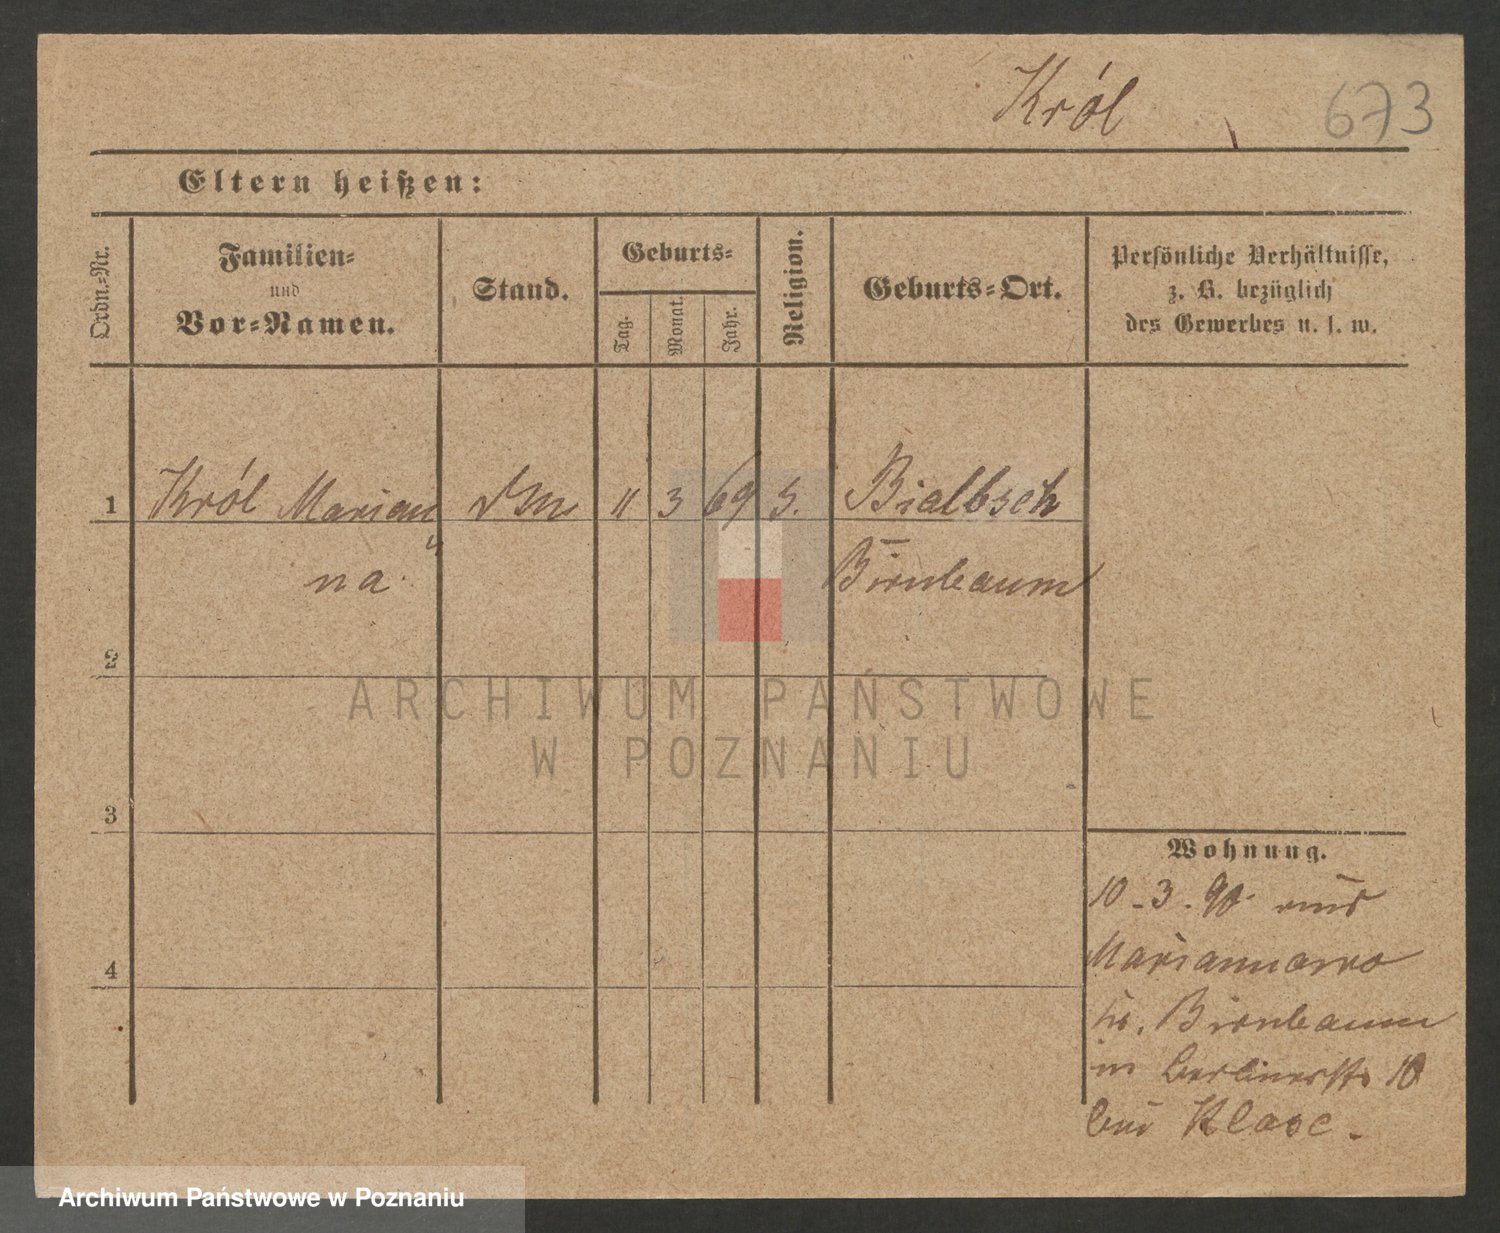 Król 673
Eltern heißen:
Ordn.-Nr.
Familien-
und
Vor-Namen.
Stand.
Geburts-
Tag.
Monat.
Jahr.
Religion.
Geburts-Ort.
Persönliche Verhältnisse,
z. B. bezüglich
des Gewerbes u. s. w.
1 Król Marian 11 3 69 Bialbsch
na Birnbaum
2
3
4
Wohnung.
10-3.90. aus
Mariannowo
Kr. Birnbaum
in Berlinerstr 10
bei
ARCHIWUM PAŃSTWOWE
W POZNANIU
Archiwum Państwowe w Poznaniu